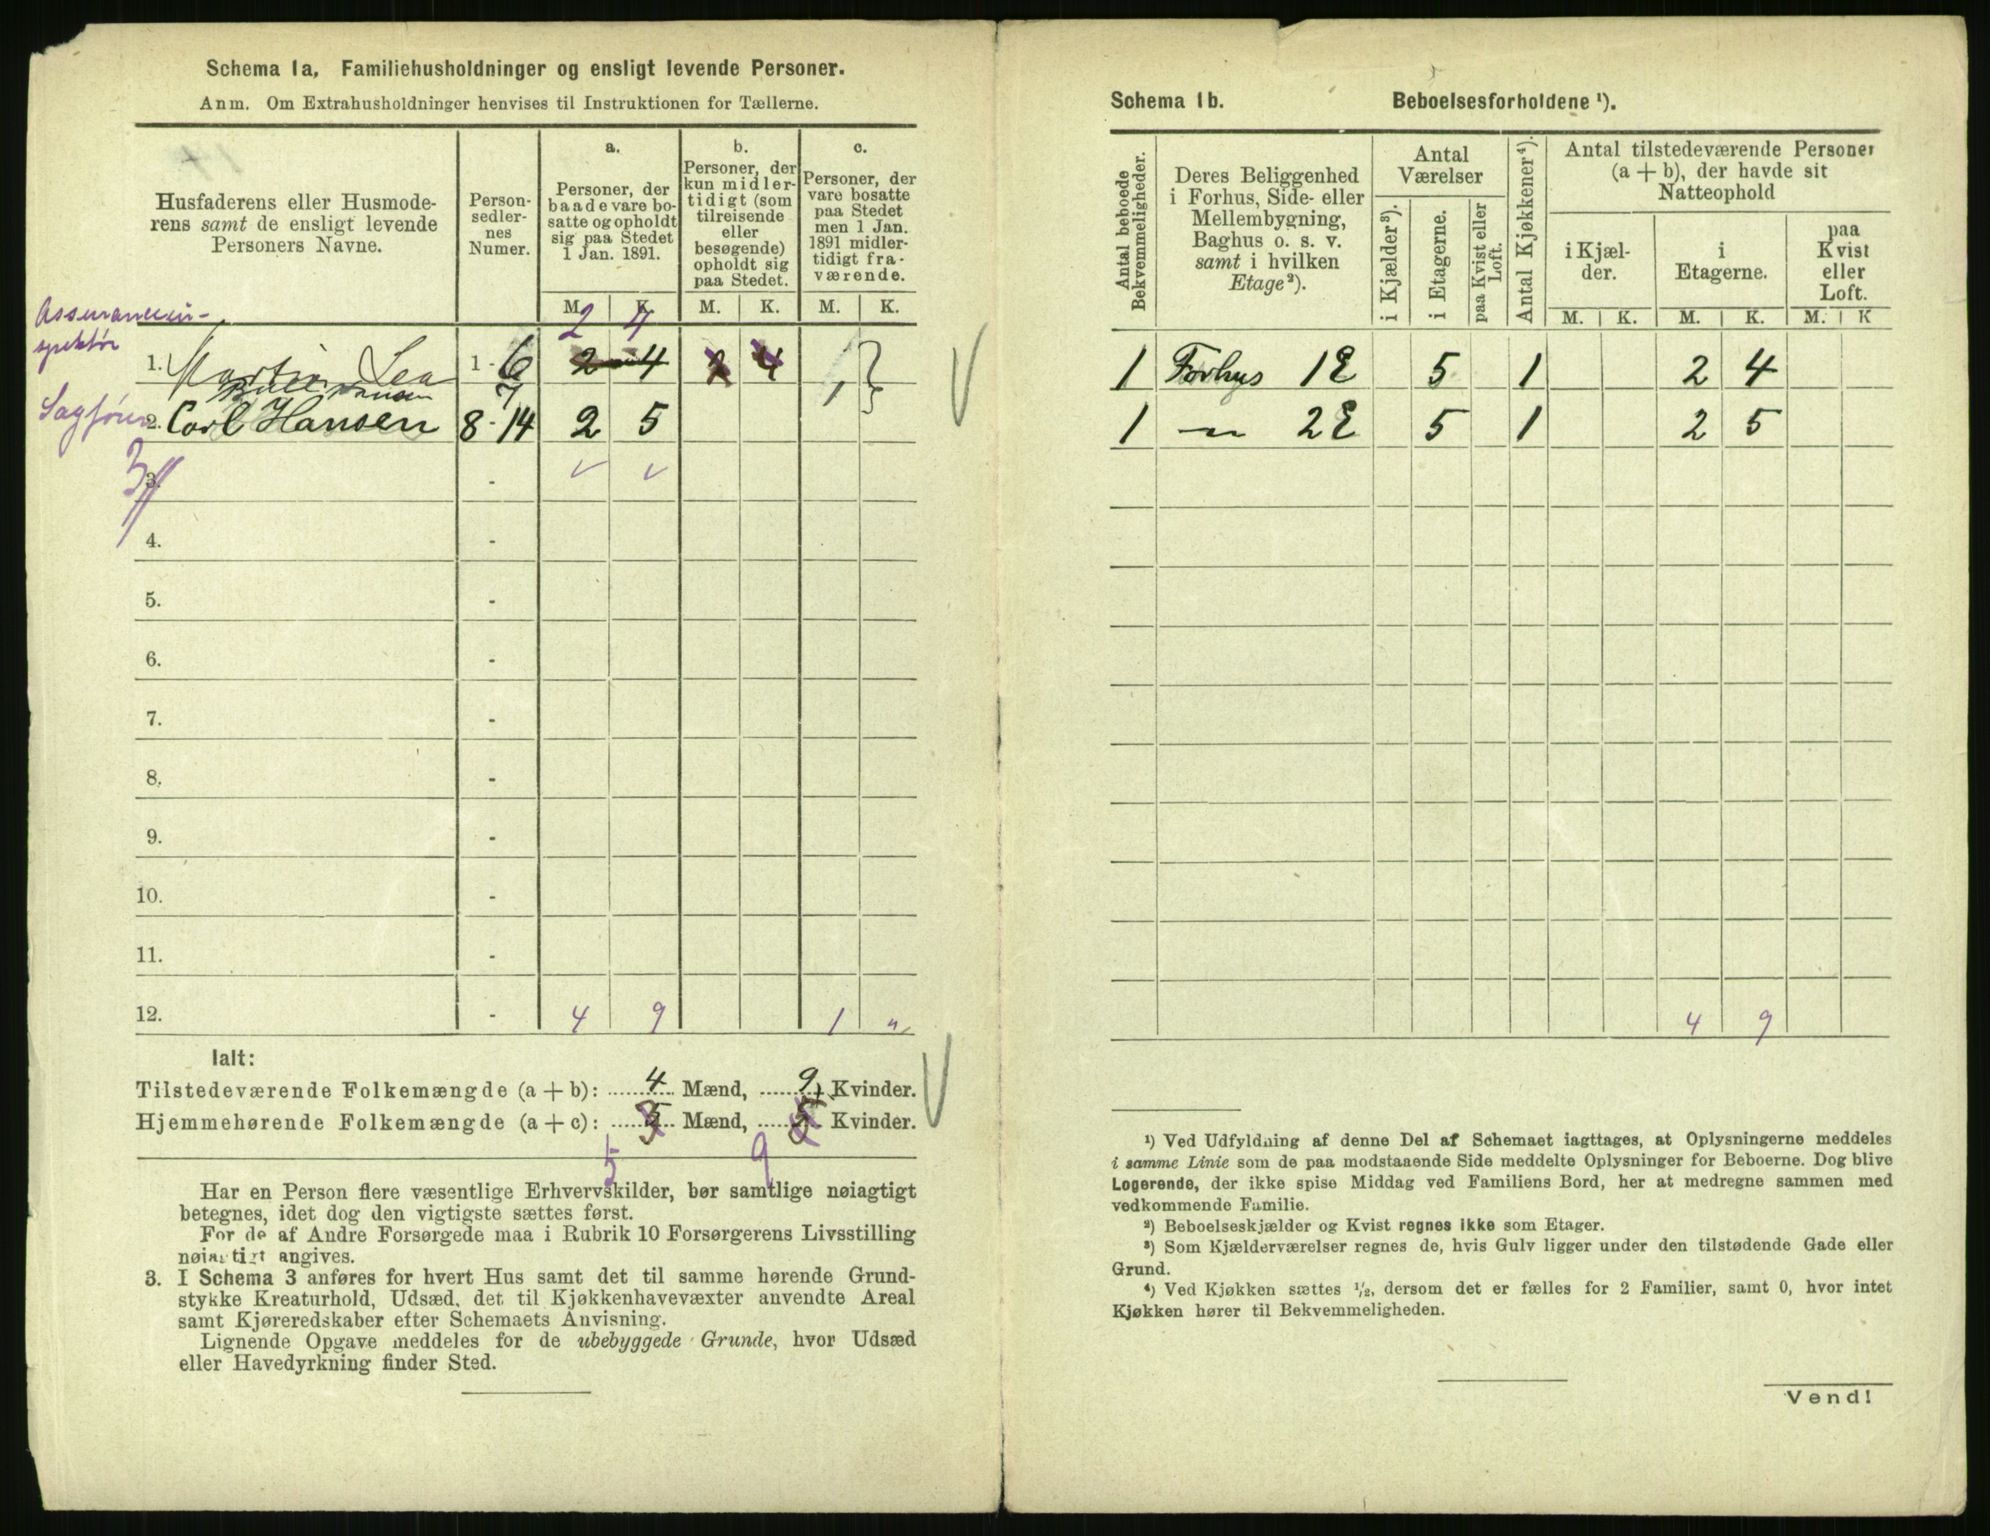 Schema 1a. Familiehusholdninger og ensligt levende Personer.
Anm. Om Extrahusholdninger henvises til Instruktionen for Tællerne.
Husfaderens eller Husmode-
rens samt de ensligt levende
Personers Navne.
Person-
sedler-
nes
Numer.
a.
Personer, der
baade vare bo-
satte og opholdt
sig paa Stedet
1 Jan. 1891.
b.
Personer, der
kun midler-
tidigt (som
tilreisende
eller
besøgende)
opholdt sig
paa Stedet.
c.
Personer, der
vare bosatte
paa Stedet
men 1 Jan.
1891 midler-
tidigt fra-
værende.
M. K. M. K. M. K.
2 4
Assurancein-
spektør
1. Martin Lea 1 - 6 2 4 2 4
7 1
Sagfører
2. Carl Hansen 8 - 14 2 5
3. -
4. -
5. -
6. -
7. -
8. -
9. -
10. -
11. -
12. - 4 9 1 "
Ialt:
Tilstedeværende Folkemængde (a + b): 4 Mænd, 9 Kvinder.
Hjemmehørende Folkemængde (a + c): Mænd, Kvinder.
5 9
Har en Person flere væsentlige Erhvervskilder, bør samtlige nøiagtigt
betegnes, idet dog den vigtigste sættes først.
For de af Andre Forsørgede maa i Rubrik 10 Forsørgerens Livsstilling
nøiagtigt angives.
3. I Schema 3 anføres for hvert Hus samt det til samme hørende Grund-
stykke Kreaturhold, Udsæd, det til Kjøkkenhavevæxter anvendte Areal
samt Kjøreredskaber efter Schemaets Anvisning.
Lignende Opgave meddeles for de ubebyggede Grunde, hvor Udsæd
eller Havedyrkning finder Sted.
Schema 1b. Beboelsesforholdene ¹).
Antal beboede
Bekvemmeligheder.
Deres Beliggenhed
i Forhus, Side- eller
Mellembygning,
Baghus o. s. v.
samt i hvilken
Etage²).
Antal
Værelser
i Kjælder³).
i Etagerne.
paa Kvist eller
Loft.
Antal Kjøkkener⁴).
Antal tilstedeværende Personer
(a + b), der havde sit
Natteophold
i Kjæl-
der.
i
Etagerne.
paa
Kvist
eller
Loft.
M. K. M. K. M. K
1 Forhus 1 E 5 1 2 4
1 — " — 2 E 5 1 2 5
4 9
¹) Ved Udfyldning af denne Del af Schemaet iagttages, at Oplysningerne meddeles
i samme Linie som de paa modstaaende Side meddelte Oplysninger for Beboerne. Dog blive
Logerende, der ikke spise Middag ved Familiens Bord, her at medregne sammen med
vedkommende Familie.
²) Beboelseskjælder og Kvist regnes ikke som Etager.
³) Som Kjælderværelser regnes de, hvis Gulv ligger under den tilstødende Gade eller
Grund.
⁴) Ved Kjøkken sættes ½, dersom det er fælles for 2 Familier, samt 0, hvor intet
Kjøkken hører til Bekvemmeligheden.
Vend!